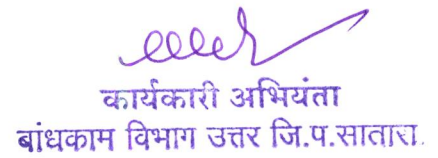 कार्यकारी अभियंता
बांधकाम विभाग उत्तर जि.प.सातारा.